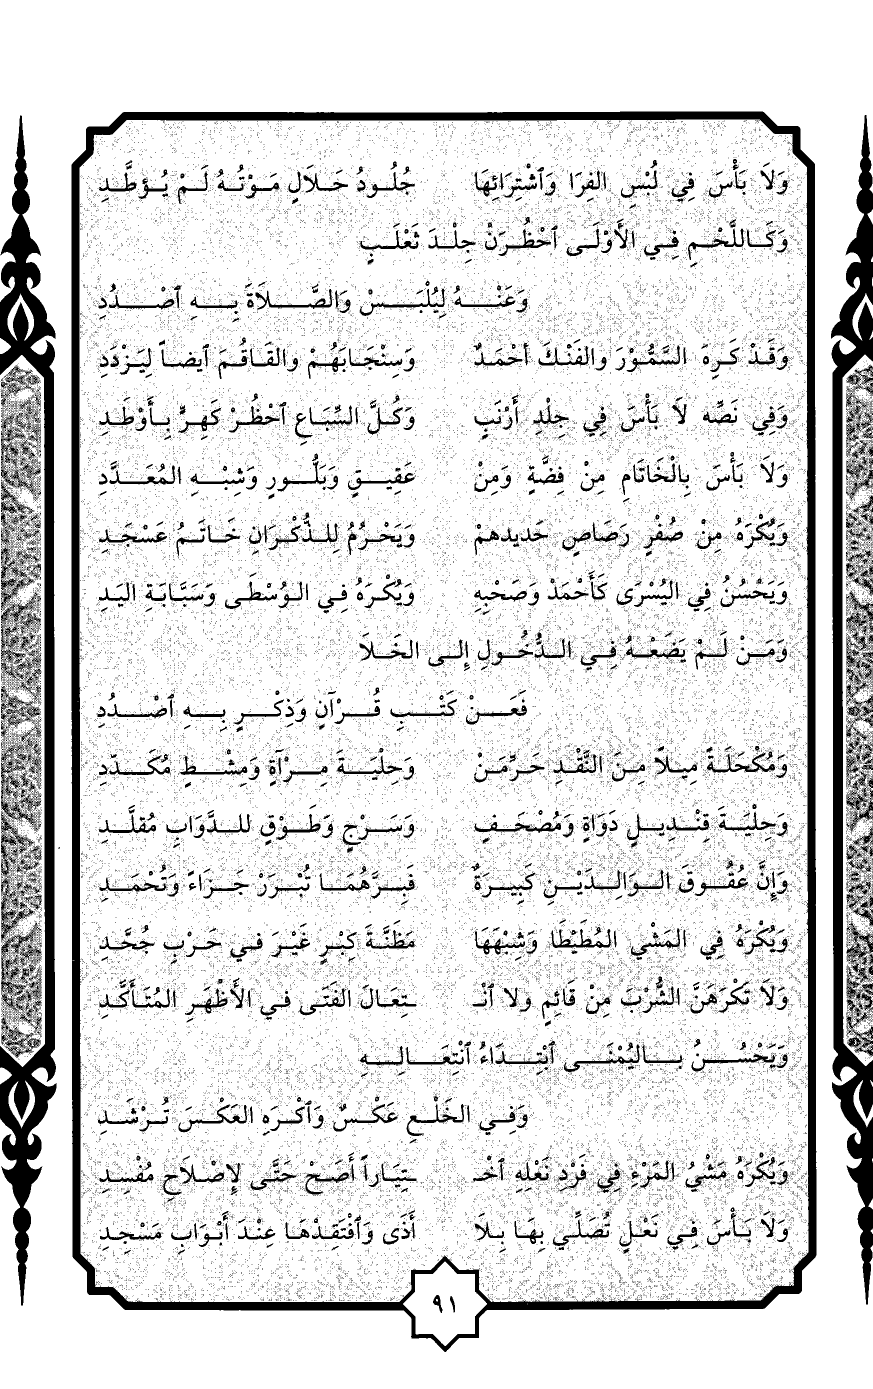 وَلاَ بَأْسَ فِي لُبْسِ الفِرَا وَٱشْتِرَائِهَا جُلُودُ حَلاَلٍ مَوْتُهُ لَمْ يُؤطَّدِ
وَكَاللَّحْمِ فِي الأَوْلَى ٱحْظُرَنْ جِلْدَ ثَعْلَبٍ
وَعَنْهُ لِيُلْبَسْ وَالصَّلاَةَ بِهِ ٱصْدُدِ
وَقَدْ كَرِهَ السَّمُّوْرَ والفَنْكَ أحْمَدٌ وَسِنْجَابَهُمْ والقَاقُمَ ٱيضاً لِيَزْدَدِ
وَفِي نَصِّه لاَ بَأْسَ فِي جِلْدِ أَرْنَبٍ وَكُلَّ السِّبَاعِ ٱحْظُرْ كَهِرٍّ بِأَوْطَدِ
وَلاَ بَأْسَ بِالْخَاتَامِ مِنْ فِضَّةٍ وَمِنْ عَقِيقٍ وَبَلُّورٍ وَشبْهِ المُعَدَّدِ
وَيُكْرَهُ مِنْ صُفْرٍ رَصَاصٍ حَديدهمْ وَيَحْرُمُ لِلذُّكْرَانِ خَاتَمُ عَسْجَدِ
وَيَحْسُنُ فِي اليُسْرَى كَأَحْمَدْ وَصَحْبِهِ وَيُكْرَهُ فِي الوُسْطَى وَسَبَّابَةِ اليَدِ
وَمَنْ لَمْ يَضَعْهُ فِي الدُّخُولِ إِلى الخَلاَ
فَعَنْ كَتْبِ قُرْآنٍ وَذِكْرٍ بِهِ ٱصْدُدِ
وَمُكْحَلَةً مِيلاً مِنَ النَّقْدِ حَرِّمَنْ وَحِلْيَةَ مِرْآةٍ وَمِشْطٍ مُكَدّدِ
وَحِلْيَةَ قِنْدِيلٍ دَوَاةٍ وَمُصْحَفٍ وَسَرْجٍ وَطَوْقٍ للدَّوَابِ مُقلَّدِ
وَإِنَّ عُقُوقَ الوَالِدَيْنِ كَبِيرَةٌ فَبِرَّهُمَا تُبْرَرْ جَزَاءً وَتُحْمَدِ
وَيُكْرَهُ فِي المَشْي المُطَيْطَا وَشِبْهَهَا مَظَنَّةَ كِبْرٍ غَيْرَ في حَرْبِ جُحَّدِ
وَلاَ تَكْرَهَنَّ الشُّرْبَ مِنْ قَائِمٍ ولا ٱنْـ ـتِعَالَ الفَتَى في الأَظْهَرِ المُتَأَكَّدِ
وَيَحْسُنُ بِاليُمْنَى ٱبْتِدَاءُ ٱنْتِعَالِهِ
وَفِي الخَلْعِ عَكْسٌ وَٱكْرَهِ العَكْسَ تُرْشَدِ
وَيُكْرَهُ مَشْيُ المَرْءِ فِي فَرْدِ نَعْلِهِ ٱخْـ ـتِيَاراً أَصَحْ حَتَّى لإِصْلاَحِ مُفْسِدِ
وَلاَ بَأْسَ فِي نَعْلٍ تُصَلِّي بِهَا بِلاَ أَذَى وَٱفْتَقِدْهَا عِنْدَ أَبْوَابِ مَسْجِدِ
٩١